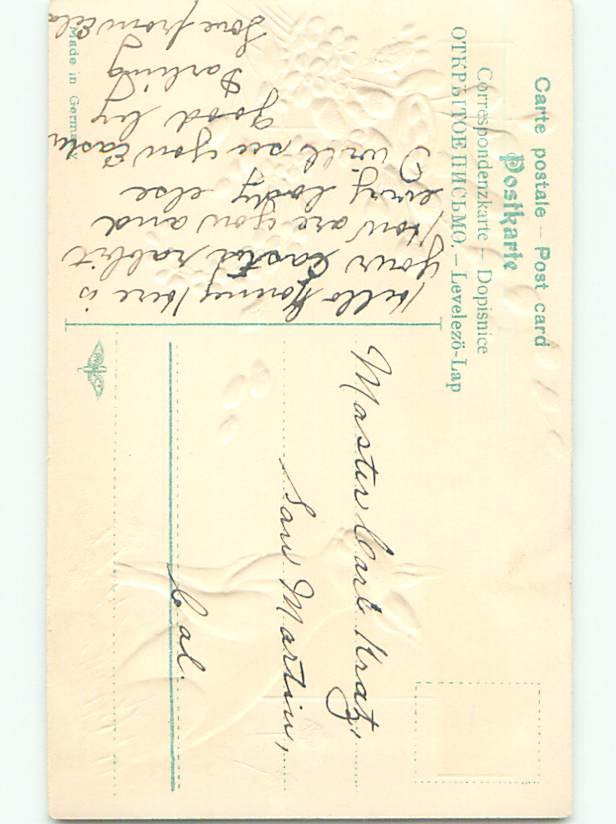 Carte postale — Post card
Postkarte
Correspondenzkarte — Dopisnice
ОТКРЫТОЕ ПИСЬМО. — Levelező-Lap
Hello Honney here is
your Easter rabbit
How are you and
every body else
I will see you Easter
good by
Darling
Love from Ella
Made in Germany
Master Carl Kratz,
San Martin,
Cal.